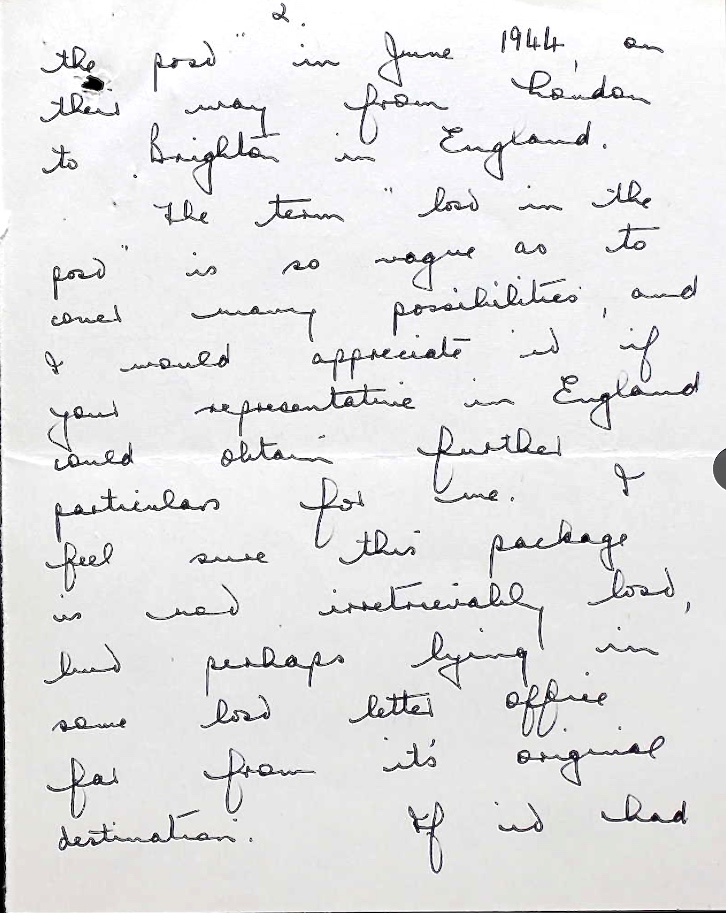 2.
the post" in June 1944, on
their way from London
to Brighton in England.
The term "lost in the
post" is so vague as to
cover many possibilities, and
I would appreciate it if
your representative in England
could obtain further
particulars for me. I
feel sure this package
is not irretrievably lost,
but perhaps lying in
some lost letter office
far from it's original
destination. If it had